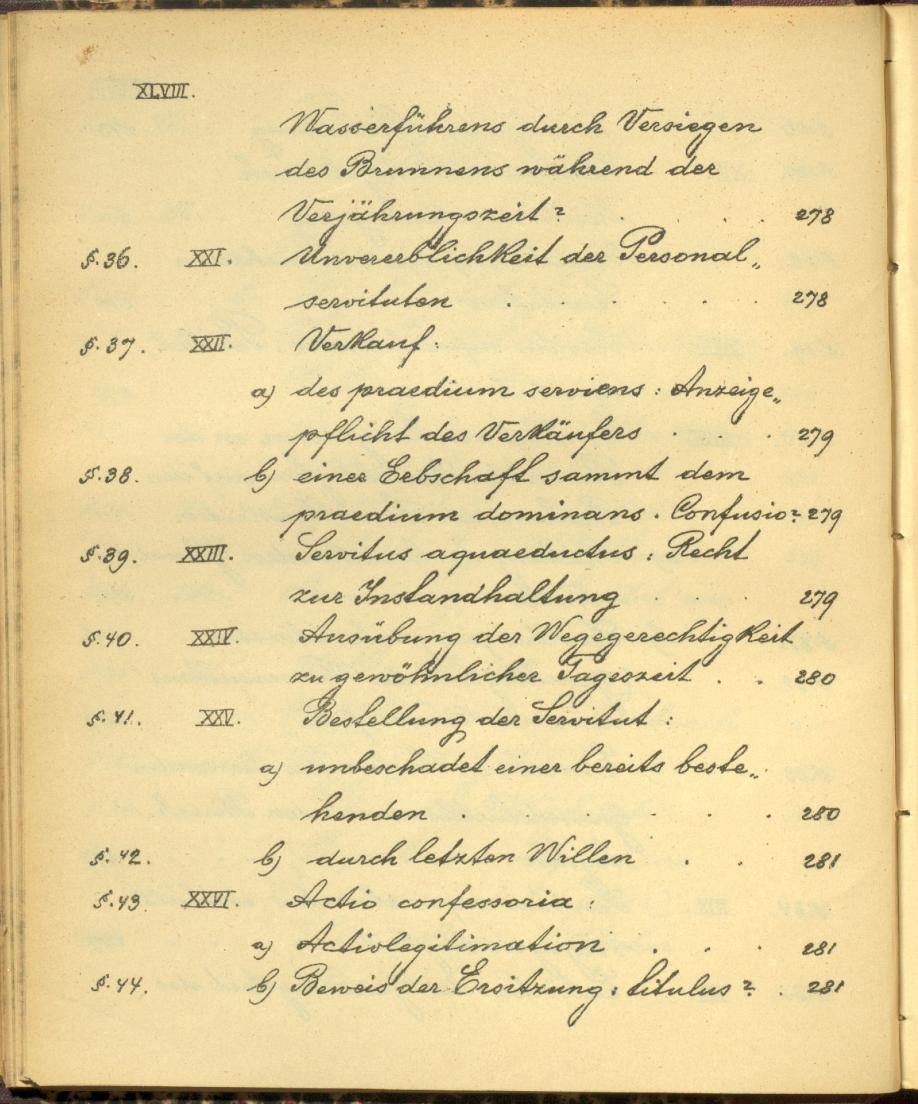 XLVIII.
Wasserführens durch Versiegen
des Brunnens während der
Verjährungszeit? . . . 278
§.36. XXI. Unvererblichkeit der Personal„
servituten . . . . . . 278
§.37. XXII. Verkauf:
a) des praedium serviens: Anzeige„
pflicht des Verkäufers . . . 279
§.38. b) einer Erbschaft sammt dem
praedium dominans. Confusio? 279
§.39. XXIII. Servitus aquaeductus: Recht
zur Instandhaltung . . 279
§.40. XXIV. Ausübung der Wegegerechtigkeit
zu gewöhnlicher Tageszeit . . 280
§.41. XXV. Bestellung der Servitut:
a) unbeschadet einer bereits beste„
henden . . . . 280
§.42. b) durch letzten Willen . . 281
§.43. XXVI. Actio confessoria:
a) Activlegitimation . . . 281
§.44. b) Beweis der Ersitzung: titulus? . 281